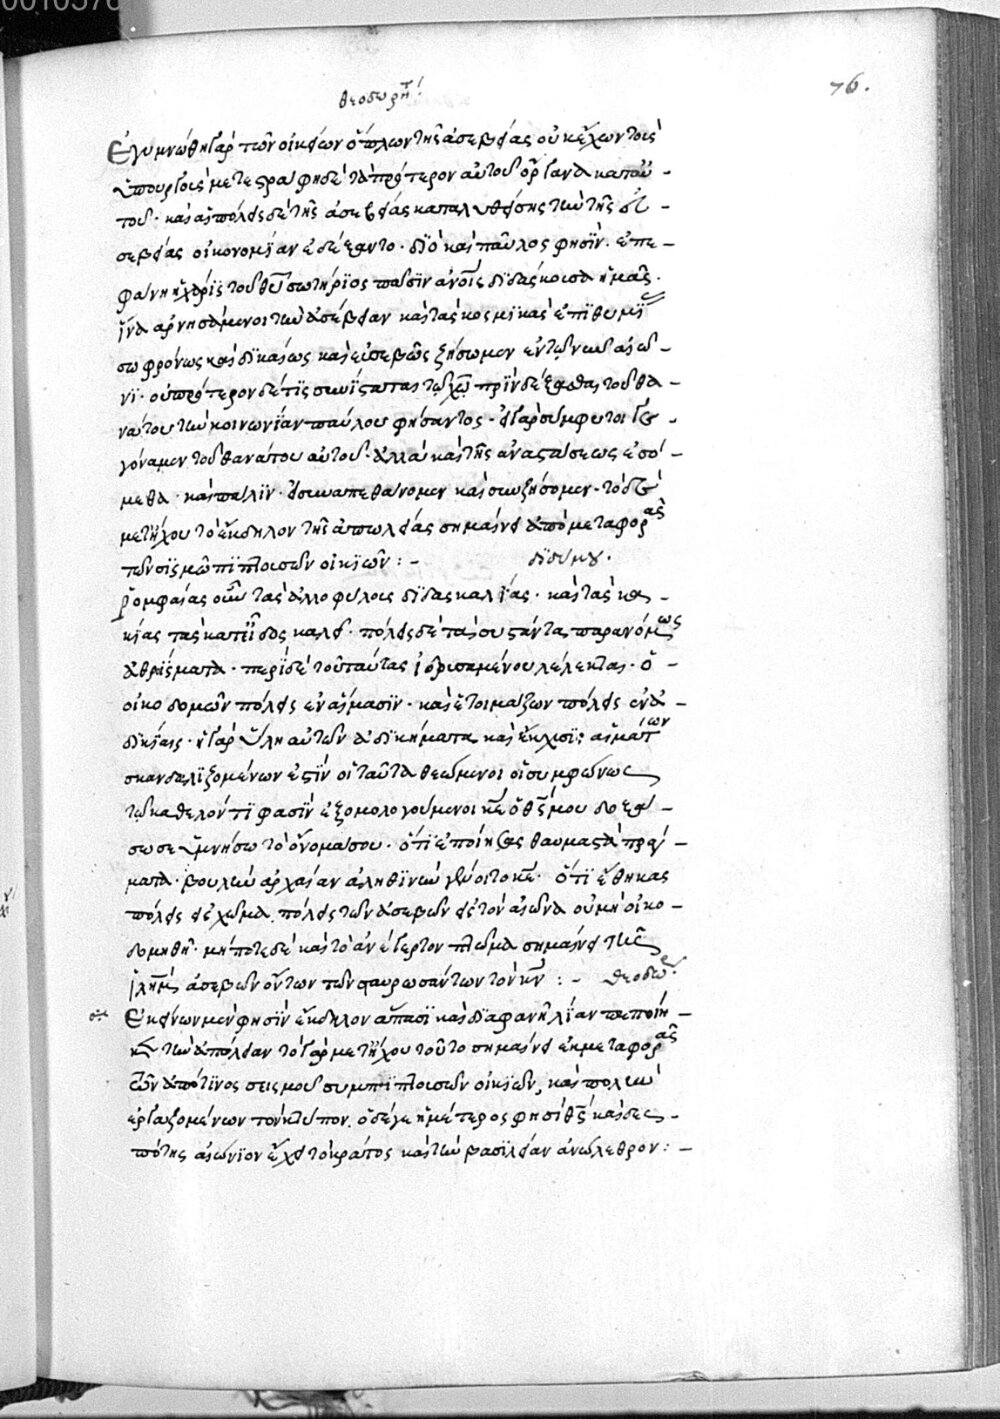 0010576
θεοδωρήτ
76.
Ἐγυμνώθη γὰρ τῶν οἰκείων ὅπλων τῆς ἀσεβείας οὐκ ἔχων τοὺς
ὑπουργούς· μετεστράφη δὲ τὰ πρότερον αὐτοῦ ὄργανα κατ' αὐ-
τοῦ· καὶ αἱ πόλεις δὲ τῆς ἀσεβείας καταλυθείσης τὴν τῆς εὐ-
σεβείας οἰκονομίαν ἐδέξαντο· διὸ καὶ παῦλος φησίν· ἐπε-
φάνη ἡ χάρις τοῦ θυ σωτήριος πᾶσιν ανοις διδάσκουσα ἡμᾶς·
ἵνα ἀρνησάμενοι τὴν ἀσέβειαν καὶ τὰς κοσμικὰς ἐπιθυμί
σωφρόνως καὶ δικαίως καὶ εὐσεβῶς ζήσωμεν ἐν τῷ νῦν αἰῶ-
νι· οὐ πρότερον δέ τις συνίσταται τῷ χω πρὶν δέξασθαι τοῦ θα-
νάτου τὴν κοινωνίαν παύλου φήσαντος· εἰ γὰρ σύμφυτοι γε-
γόναμεν τοῦ θανάτου αὐτοῦ· ἀλλὰ καὶ τῆς ἀναστάσεως ἐσό-
μεθα· καὶ πάλιν· εἰ συναπεθάνομεν καὶ συζήσομεν· τὸ δὲ
μετ' ἤχου τὸ ἔκδηλον τῆς ἀπωλείας σημαίνει ἀπὸ μεταφορᾶς
τῶν σισμῷ πιπτουσῶν οἰκιῶν :- διδύμου.
ῥομφαίας οὖν τὰς ἀλλοφύλους διδασκαλίας· καὶ τὰς κα-
κίας τὰς κατ' εἶδος καλεῖ· πόλεις δὲ τὰ συστάντα παρανόμως
ἀθροίσματα· περὶ δὲ τοῦ ταύτας ἱδρυσαμένου λέλεκται· ὁ
οἰκοδομῶν πόλεις ἐν αἵμασιν· καὶ ἑτοιμάζων πόλεις ἐν ἀ-
δικίαις· ἡ γὰρ ὕλη αὐτῶν ἀδικήματα καὶ ἔκχυσις αἱμάτων
σκανδαλιζομένων ἐστίν οἱ ταῦτα θεώμενοι οἱ συμφώνως
τῷ καθελόντι φασὶν ἐξομολογούμενοι κε ὁ θς μου δοξά-
σω σε ὑμνήσω τὸ ὄνομά σου· ὅτι ἐποίησας θαυμαστὰ πράγ-
ματα· βουλὴν ἀρχαίαν ἀληθινὴν γένοιτο κε· ὅτι ἔθηκας
πόλεις εἰς χῶμα. πόλεις τῶν ἀσεβῶν εἰς τὸν αἰῶνα οὐ μὴ οἰκο-
δομηθῇ· μήποτε δὲ καὶ τὸ ἀνέγερτον πτῶμα σημαίνει τῆς
ἰλημ ἀσεβῶν ὄντων τῶν σταυρωσάντων τὸν κν :- θεοδώ
Ἐκείνων μὲν φησὶν ἔκδηλον ἅπασι καὶ διαφανῆ λίαν πεποίη-
κε τὴν ἀπώλειαν τὸ γὰρ μετ' ἤχου τοῦτο σημαίνει ἐκ μεταφορᾶς
τῶν ἀπό τινος σεισμοῦ συμπιπτουσῶν οἰκιῶν, καὶ πολὺν
ἐργαζομένων τὸν κτύπον. ὁ δέ γε ἡμέτερος φησὶ θς καὶ δεσ-
πότης αἰώνιον ἔχει τὸ κράτος καὶ τὴν βασιλείαν ἀνώλεθρον :-